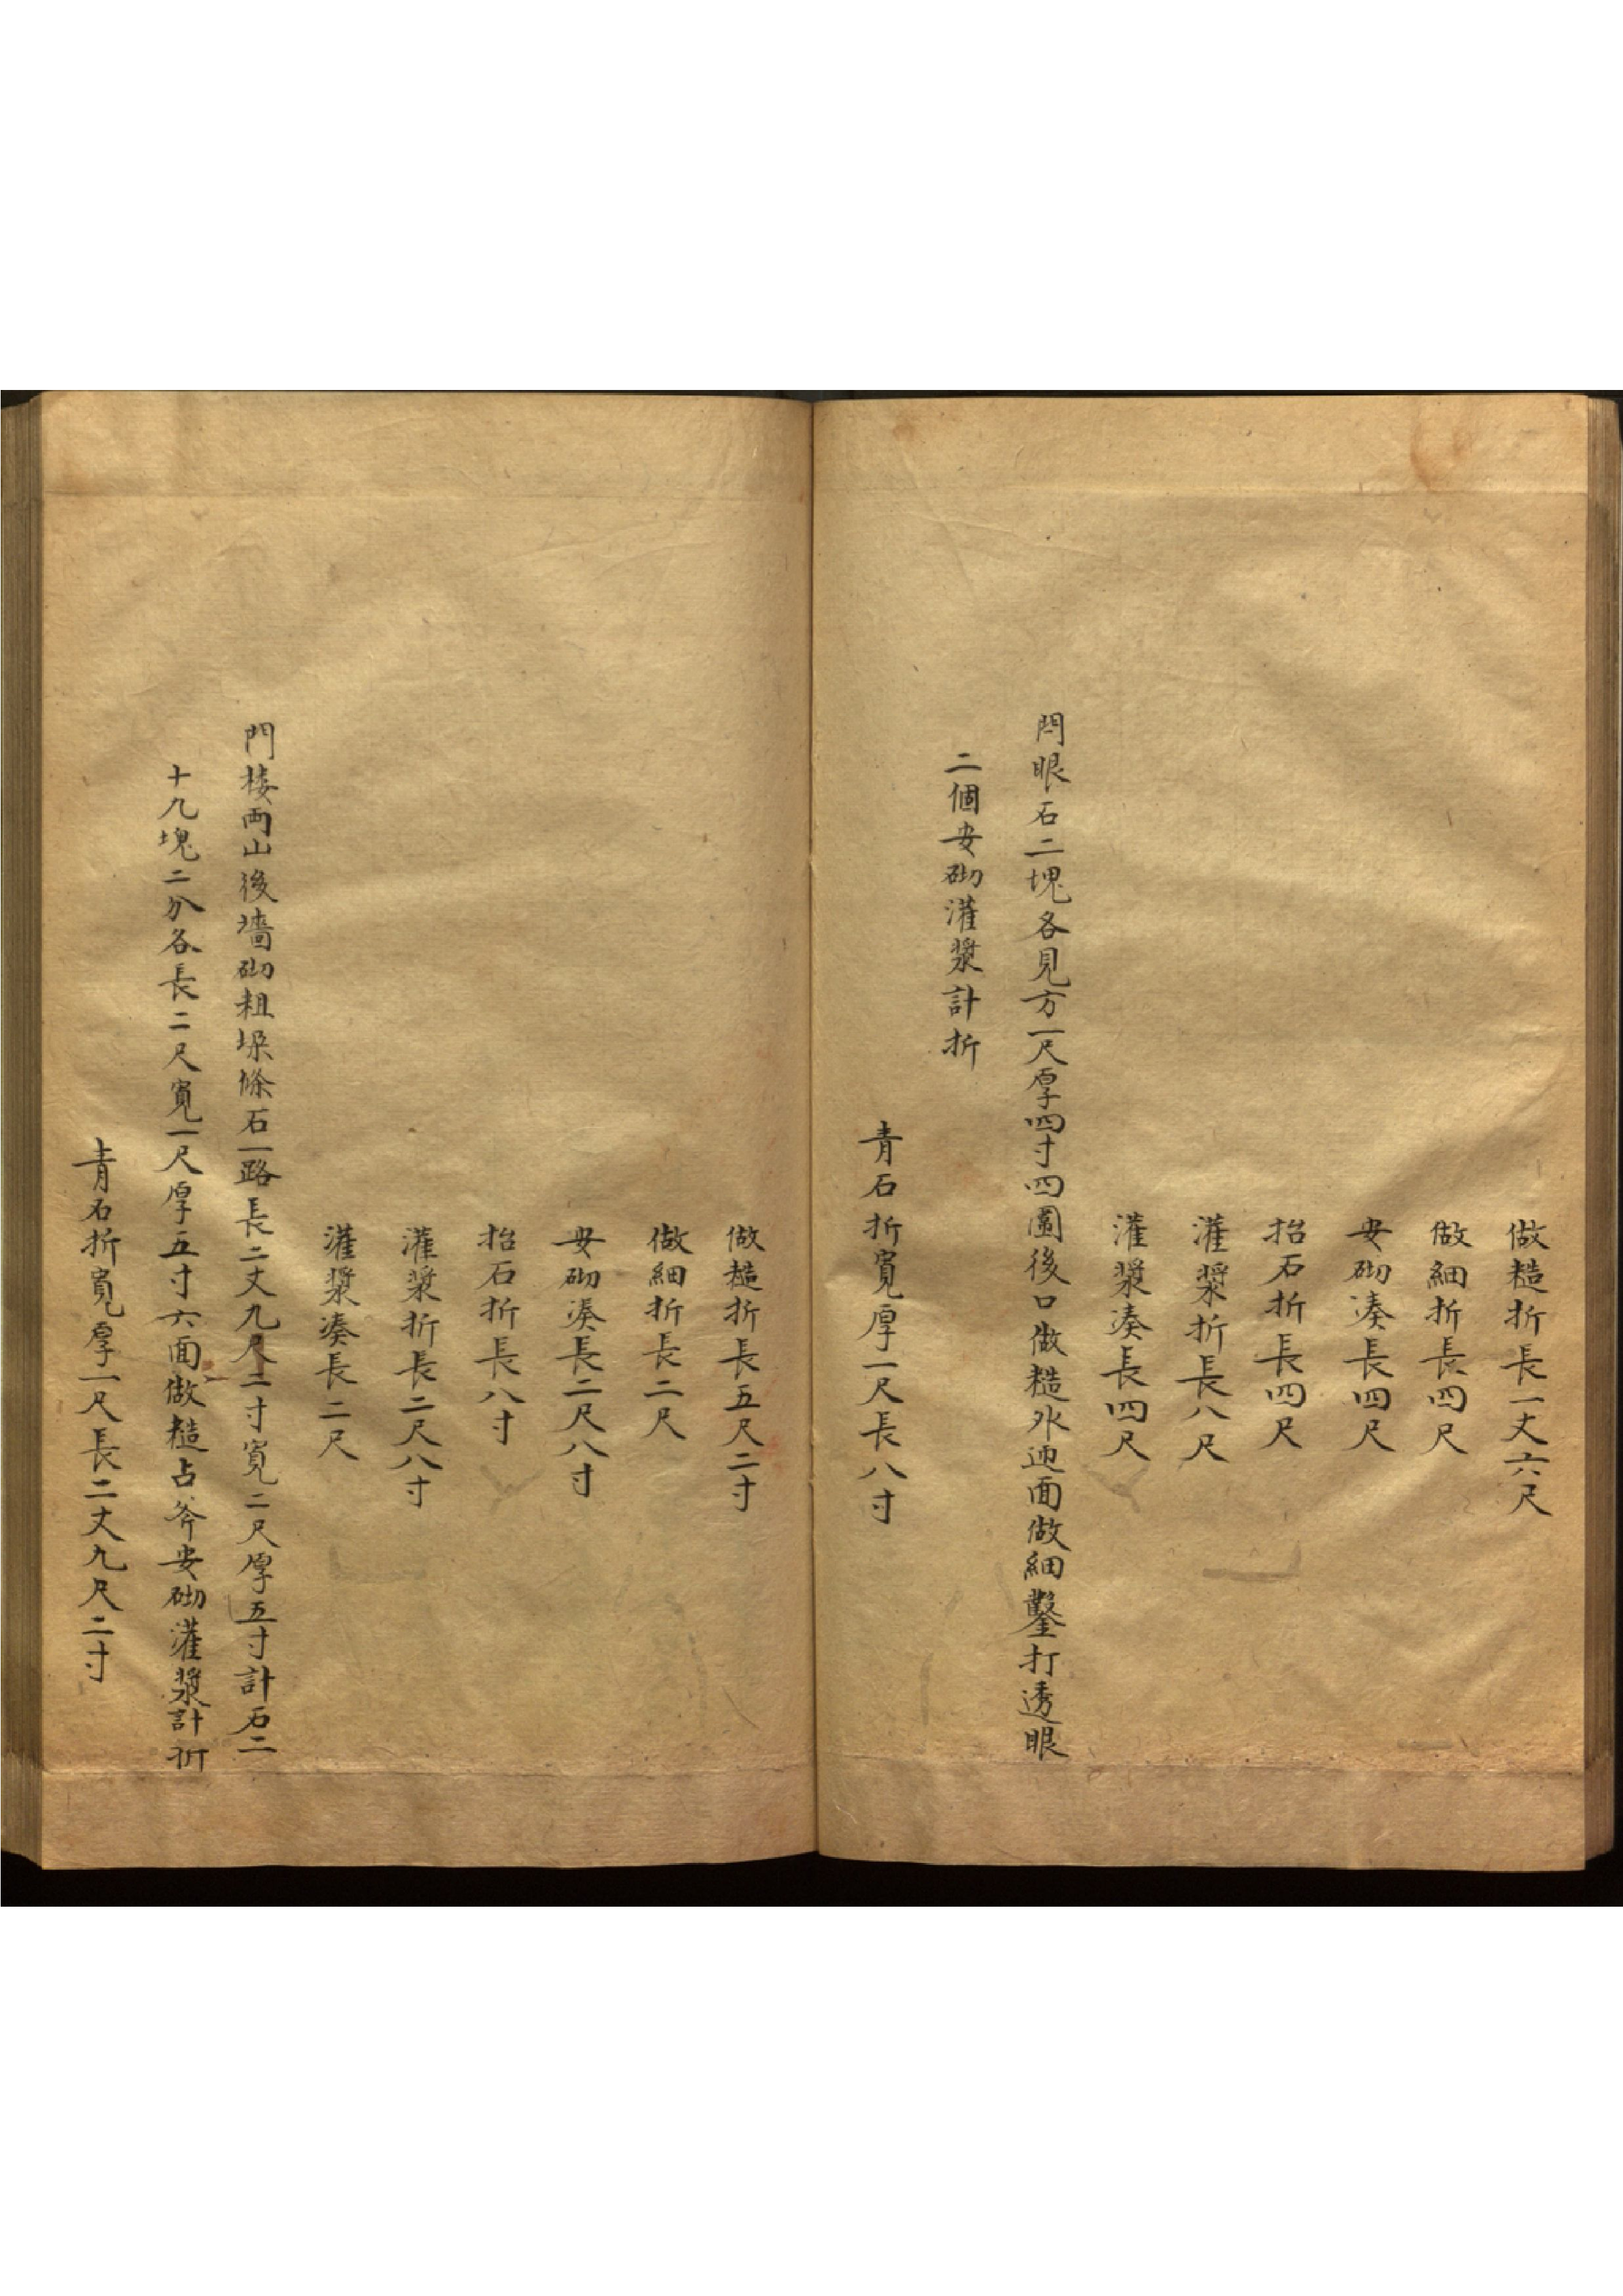 做糙折長一丈六尺
做細折長四尺
安砌湊長四尺
抬石折長四尺
灌漿折長八尺
灌漿湊長四尺
閂眼石二塊各見方一尺厚四寸四圍後口做糙外迎面做細鑿打透眼
二個安砌灌漿計折
青石折寬厚一尺長八寸
做糙折長五尺二寸
做細折長二尺
安砌湊長二尺八寸
抬石折長八寸
灌漿折長二尺八寸
灌漿湊長二尺
門楼両山後墻砌粗垜條石一路長二丈九尺二寸寬二尺厚五寸計石二
十九塊二分各長二尺寬一尺厚五寸六面做糙占斧安砌灌漿計折
青石折寬厚一尺長二丈九尺二寸